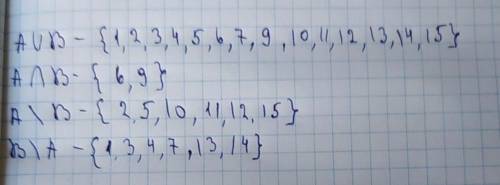 A∪B - {1,2,3,4,5,6,7,9,10,11,12,13,14,15}
A∩B - {6,9}
A\B - {2,5,10,11,12,15}
B\A - {1,3,4,7,13,14}